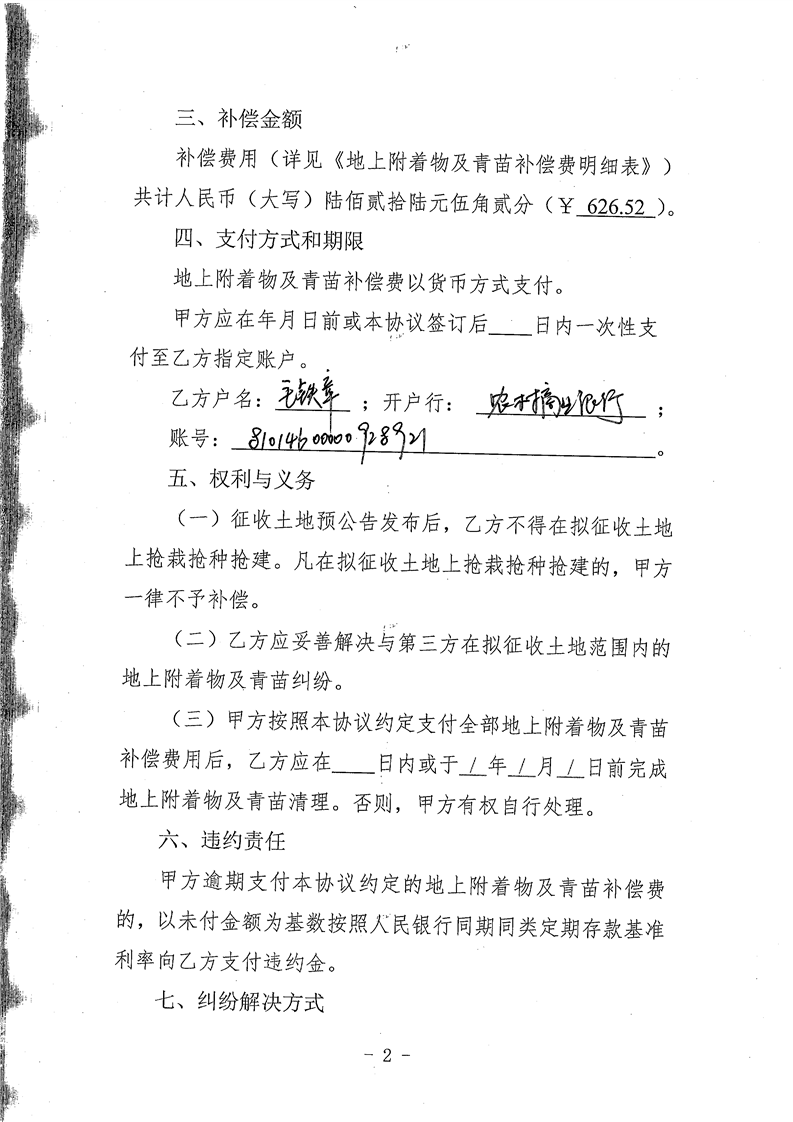 三、补偿金额
补偿费用（详见《地上附着物及青苗补偿费明细表》）
共计人民币（大写）陆佰贰拾陆元伍角贰分（￥ 626.52 ）。
四、支付方式和期限
地上附着物及青苗补偿费以货币方式支付。
甲方应在年月日前或本协议签订后____日内一次性支
付至乙方指定账户。
乙方户名：毛铁章；开户行：农村商业银行；
账号：81014600000928921。
五、权利与义务
（一）征收土地预公告发布后，乙方不得在拟征收土地
上抢栽抢种抢建。凡在拟征收土地上抢栽抢种抢建的，甲方
一律不予补偿。
（二）乙方应妥善解决与第三方在拟征收土地范围内的
地上附着物及青苗纠纷。
（三）甲方按照本协议约定支付全部地上附着物及青苗
补偿费用后，乙方应在____日内或于 / 年 / 月 / 日前完成
地上附着物及青苗清理。否则，甲方有权自行处理。
六、违约责任
甲方逾期支付本协议约定的地上附着物及青苗补偿费
的，以未付金额为基数按照人民银行同期同类定期存款基准
利率向乙方支付违约金。
七、纠纷解决方式
- 2 -